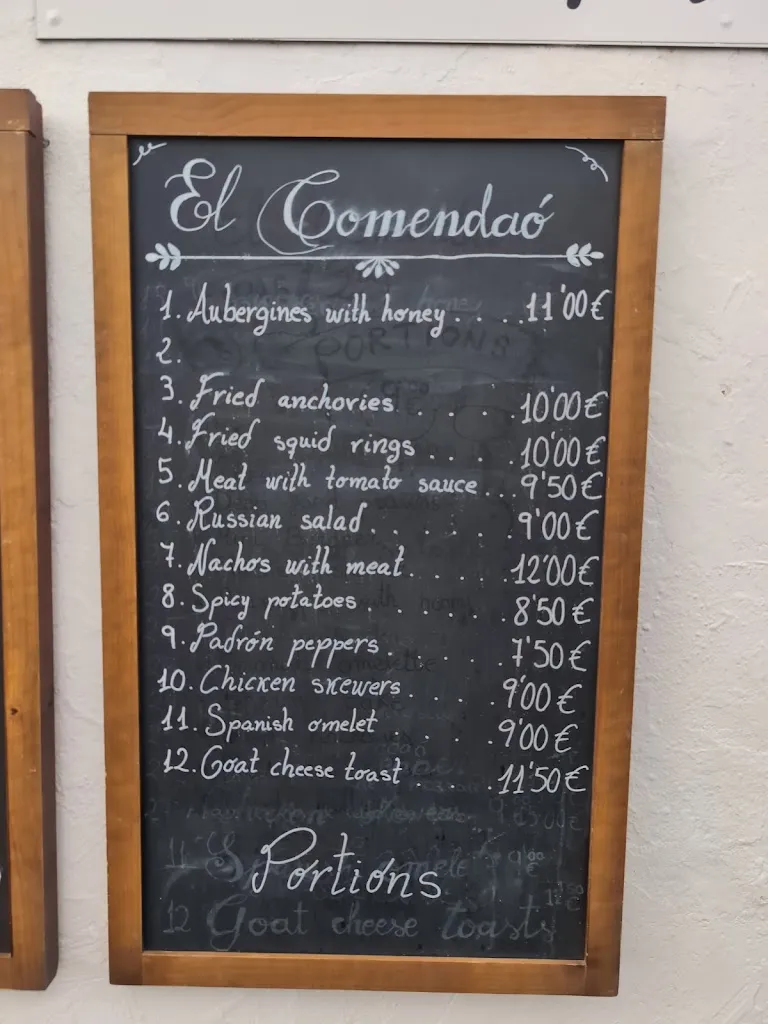 El Comendaó
1. Aubergines with honey....11'00€
2.
3. Fried anchovies.....10'00€
4. Fried squid rings....10'00€
5. Meat with tomato sauce...9'50€
6. Russian salad......9'00€
7. Nachos with meat.....12'00€
8. Spicy potatoes.....8'50€
9. Padrón peppers.....7'50€
10. Chicken skewers.....9'00€
11. Spanish omelet....9'00€
12. Goat cheese toast...11'50€
Portions
12 Goat cheese toasts